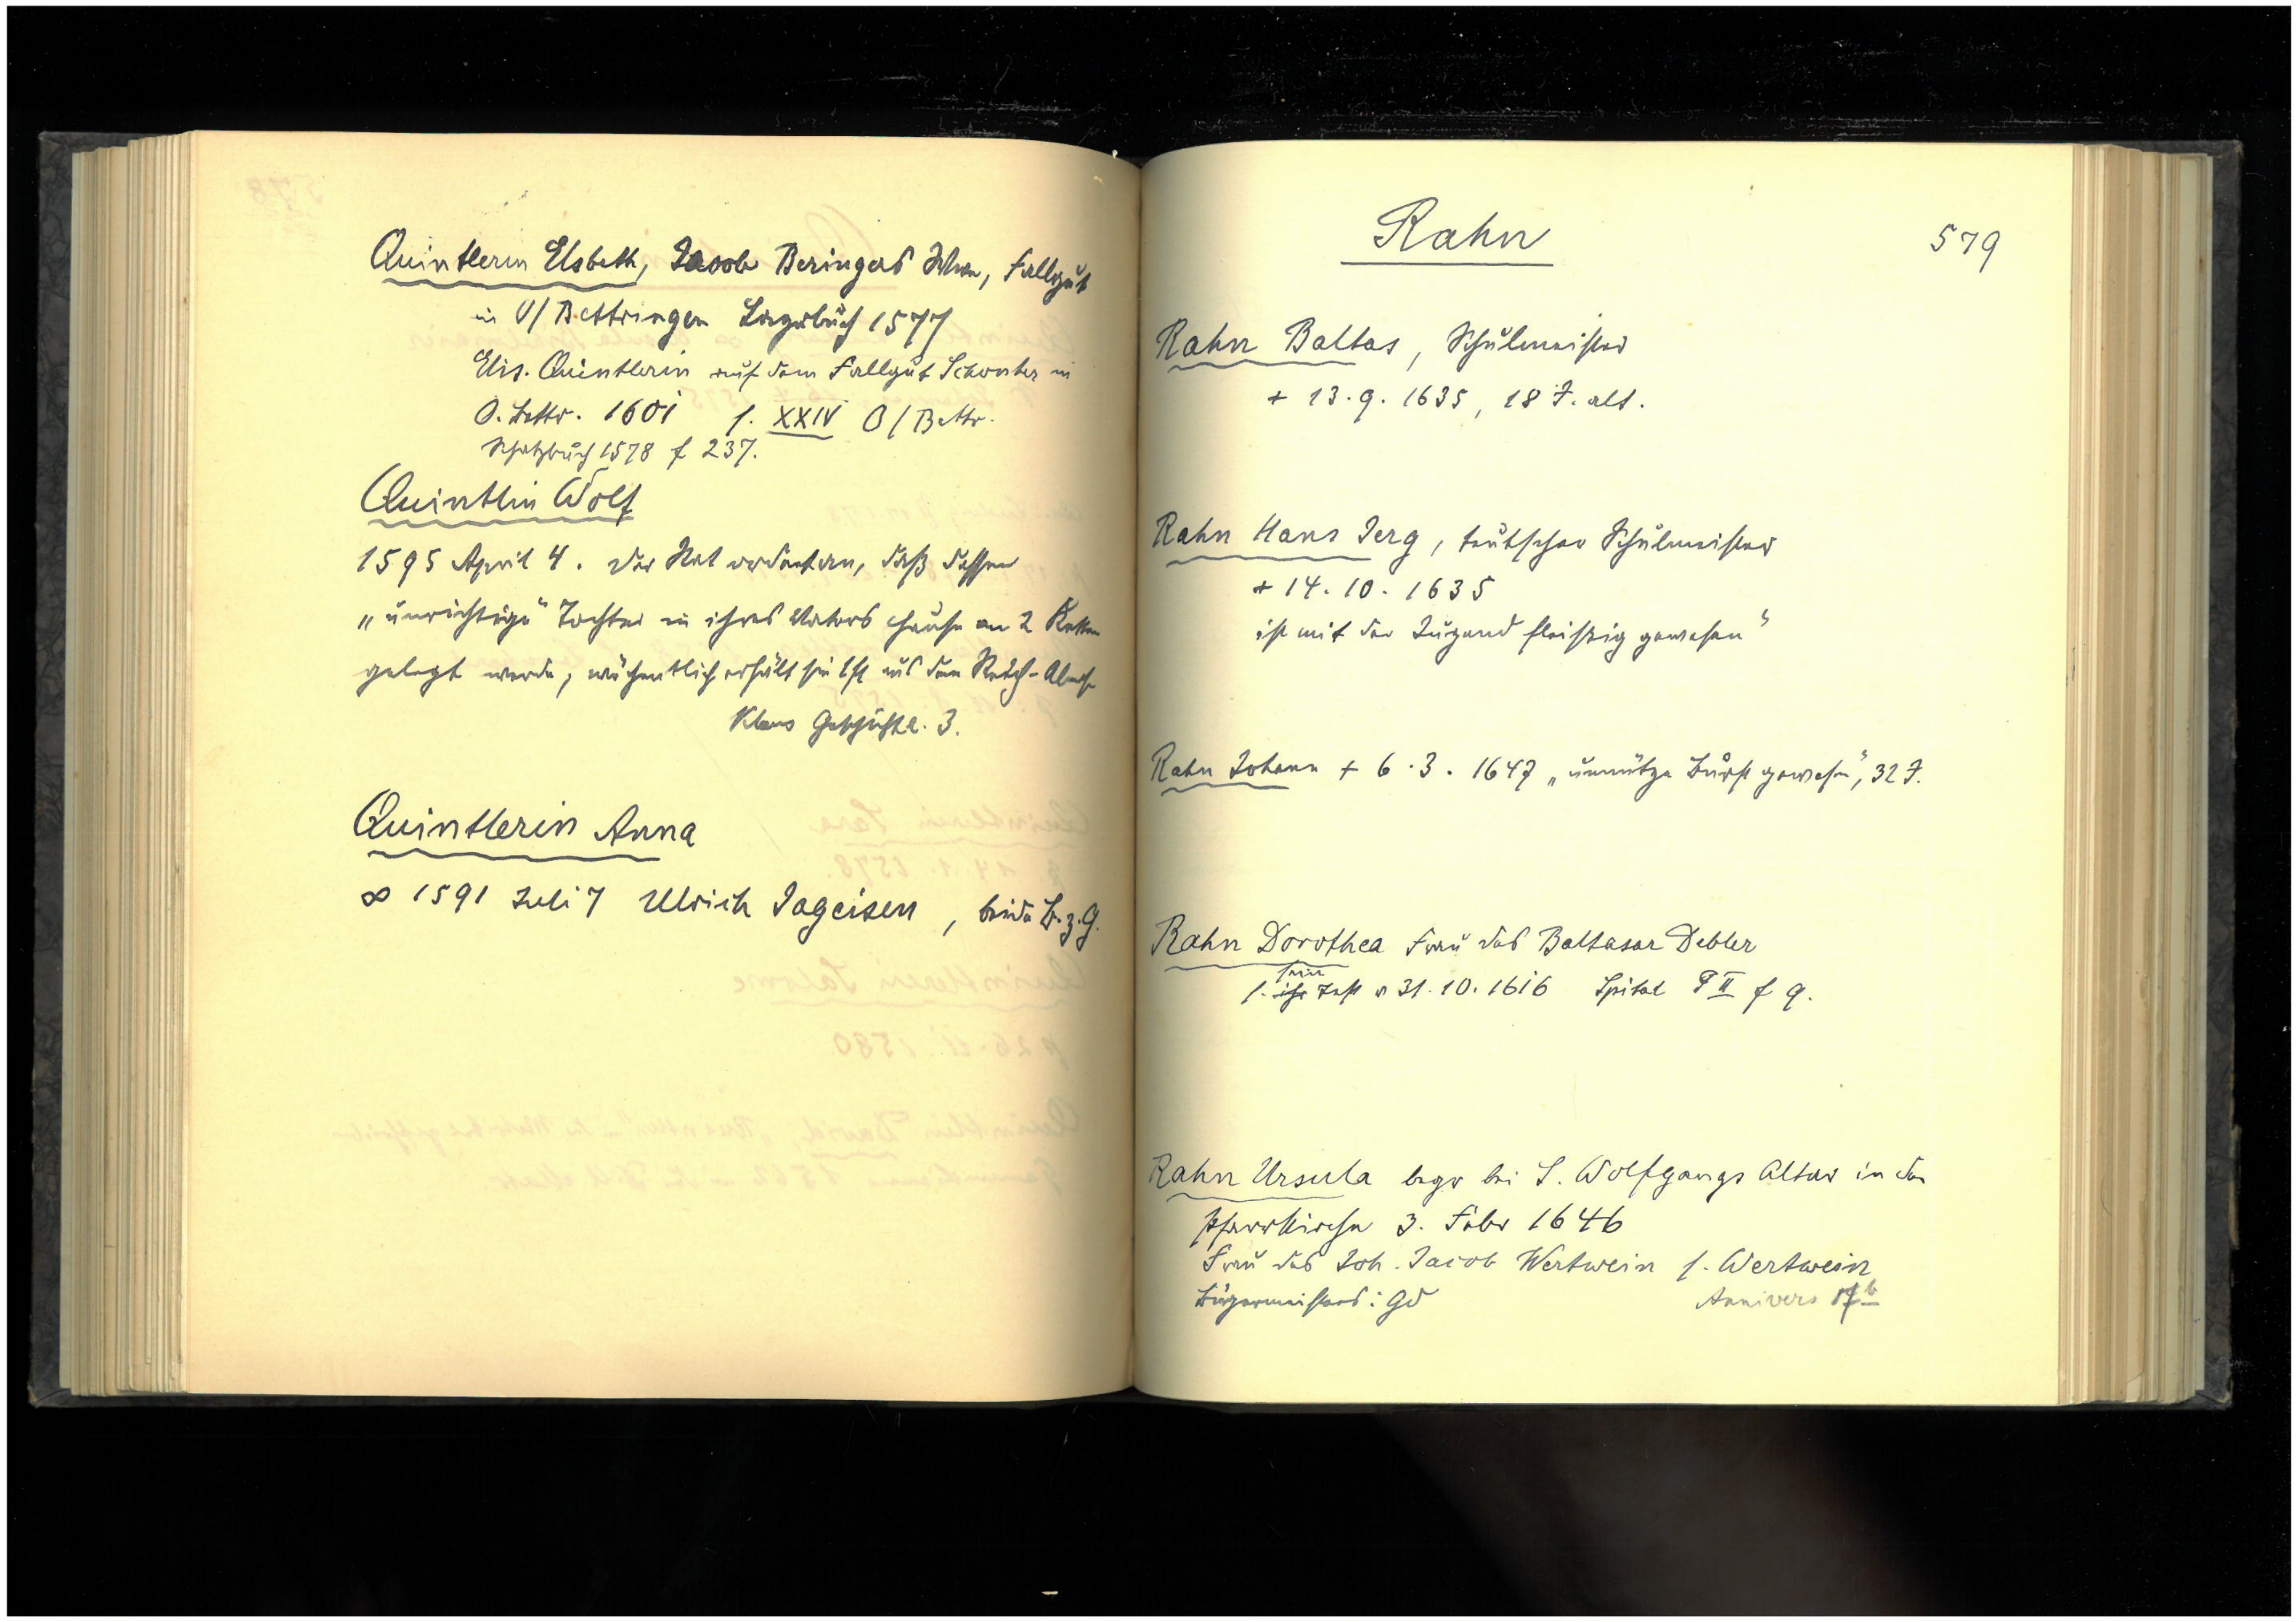 Quintlerin Elsbeth, Jacob Beringers Wwe, Fallgut
in U/Bettringen Lagerbuch 1577
Elis. Quintlerin auf dem Fallgut in
O. Bettr. 1601 f. XXIV O/Bettr.
Schatzbuch 1578 f 237.
Quintlin Wolf
1595 April 4. Der Rat verordnet an, daß dessen
„unrichtige" Tochter in ihres Vaters Hause an 2 Ketten
gelegt werde, wöchentlich erhält sie aus dem
Klaus Geschichte. 3.
Quintlerin Anna
∞ 1591 Juli 7 Ulrich Jageisen, beide B.z.G.
Rahn
579
Rahn Baltas, Schulmeister
+ 13.9.1635, 18 J. alt.
Rahn Hans Jerg, teutscher Schulmeister
+ 14.10.1635
ist mit der Jugend fleißig gewesen"
Rahn Johann + 6.3.1647 „unnütze Burst gewesen", 32 J.
Rahn Dorothea Frau des Baltasar Debler
sein
f. ihr Test v 31.10.1616 Spital P II f 9.
Rahn Ursula begr bei S. Wolfgangs Altar in der
Pfarrkirche 3. Febr 1646
Frau des Joh. Jacob Wertwein f. Wertwein
Bürgermeisters: Gd
Annivers